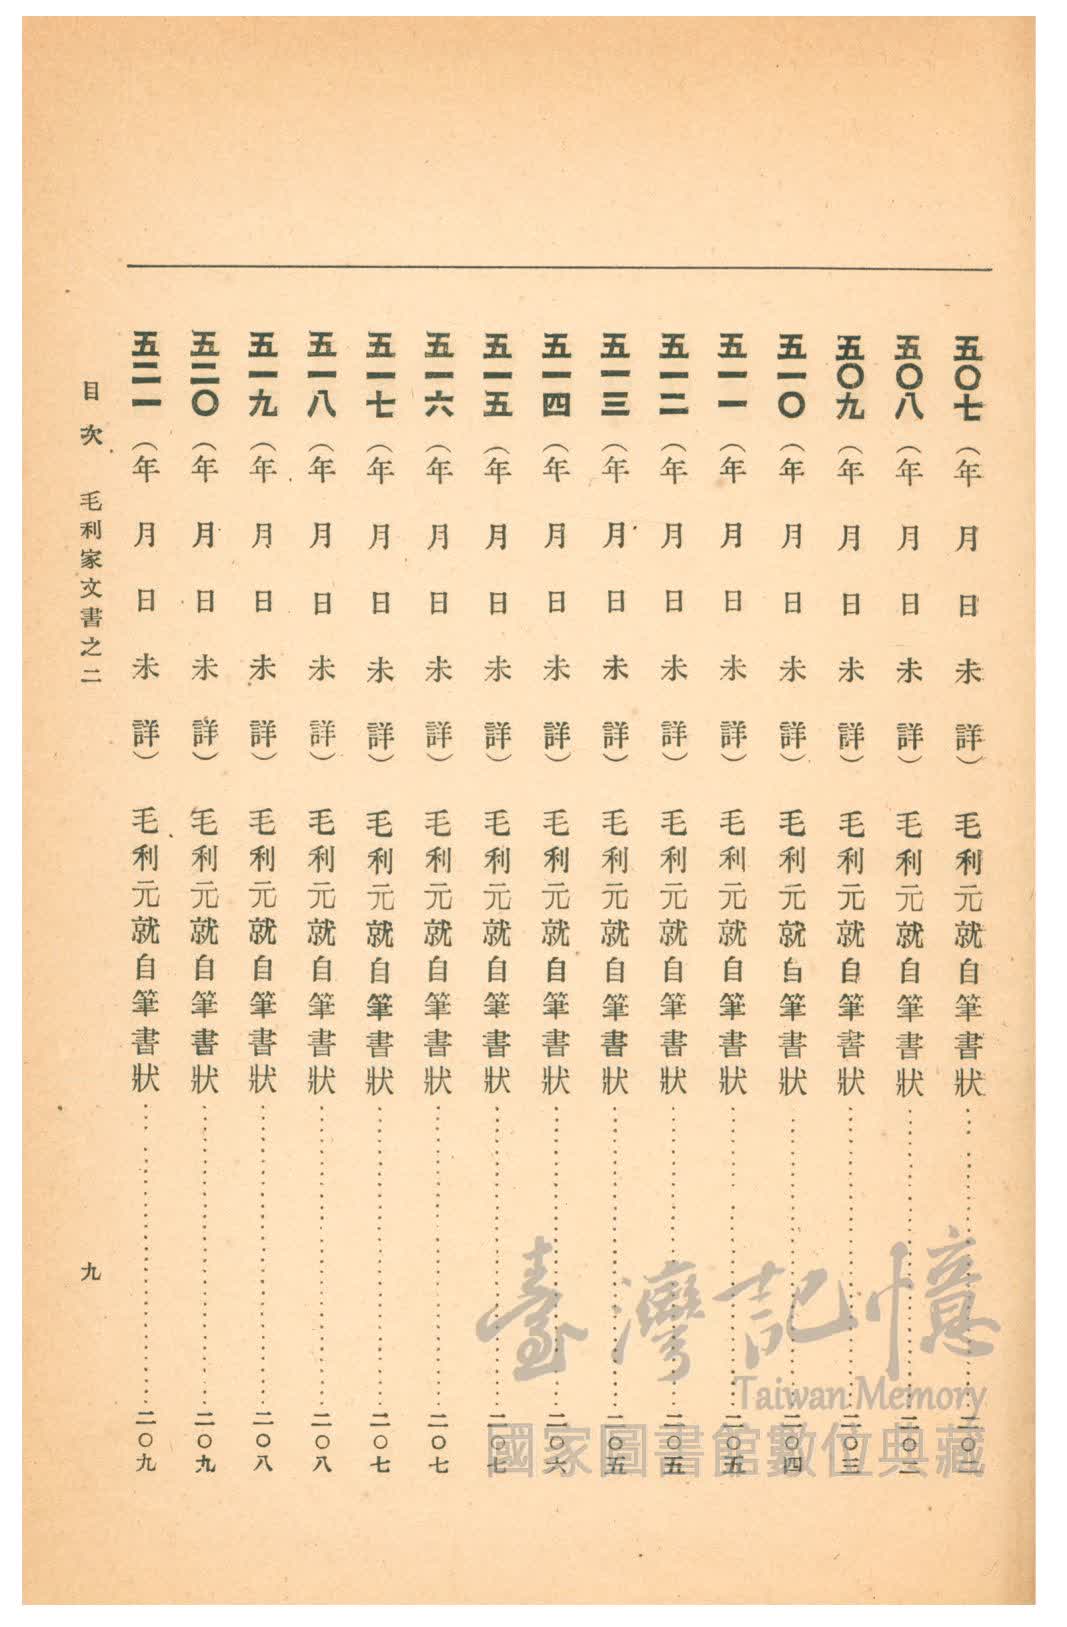 五〇七 （年月日未詳） 毛利元就自筆書狀………………二〇二
五〇八 （年月日未詳） 毛利元就自筆書狀………………二〇二
五〇九 （年月日未詳） 毛利元就自筆書狀………………二〇三
五一〇 （年月日未詳） 毛利元就自筆書狀………………二〇四
五一一 （年月日未詳） 毛利元就自筆書狀………………二〇五
五一二 （年月日未詳） 毛利元就自筆書狀………………二〇五
五一三 （年月日未詳） 毛利元就自筆書狀………………二〇五
五一四 （年月日未詳） 毛利元就自筆書狀………………二〇六
五一五 （年月日未詳） 毛利元就自筆書狀………………二〇七
五一六 （年月日未詳） 毛利元就自筆書狀………………二〇七
五一七 （年月日未詳） 毛利元就自筆書狀………………二〇七
五一八 （年月日未詳） 毛利元就自筆書狀………………二〇八
五一九 （年月日未詳） 毛利元就自筆書狀………………二〇八
五二〇 （年月日未詳） 毛利元就自筆書狀………………二〇九
五二一 （年月日未詳） 毛利元就自筆書狀………………二〇九
目次 毛利家文書之二 九
臺灣記憶
Taiwan Memory
國家圖書館數位典藏